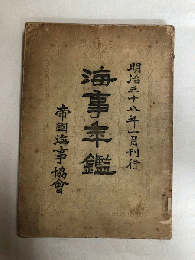 明治三十八年一月刊行
海事年鑑
帝國海事協會